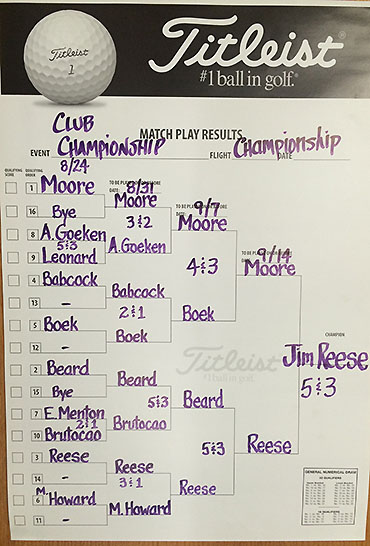 Titleist
1
Titleist
#1 ball in golf.
CLUB
MATCH PLAY RESULTS
EVENT CHAMPIONSHIP FLIGHT Championship DATE
8/24
QUALIFYING SCORE
QUALIFYING ORDER
1 Moore
16 Bye
8 A. Goeken
5&3
9 Leonard
4 Babcock
13 -
5 Boek
12 -
2 Beard
15 Bye
7 E. Menton
2&1
10 Brutocao
3 Reese
14 -
6 M. Howard
11 -
8/31
Moore
3&2
A. Goeken
Babcock
2&1
Boek
Beard
5&3
Brutocao
Reese
3&1
M. Howard
9/7
Moore
4&3
Boek
Beard
5&3
Reese
9/14
Moore
Reese
CHAMPION
Jim Reese
5&3
Titleist
#1 ball in golf.
GENERAL NUMERICAL DRAW